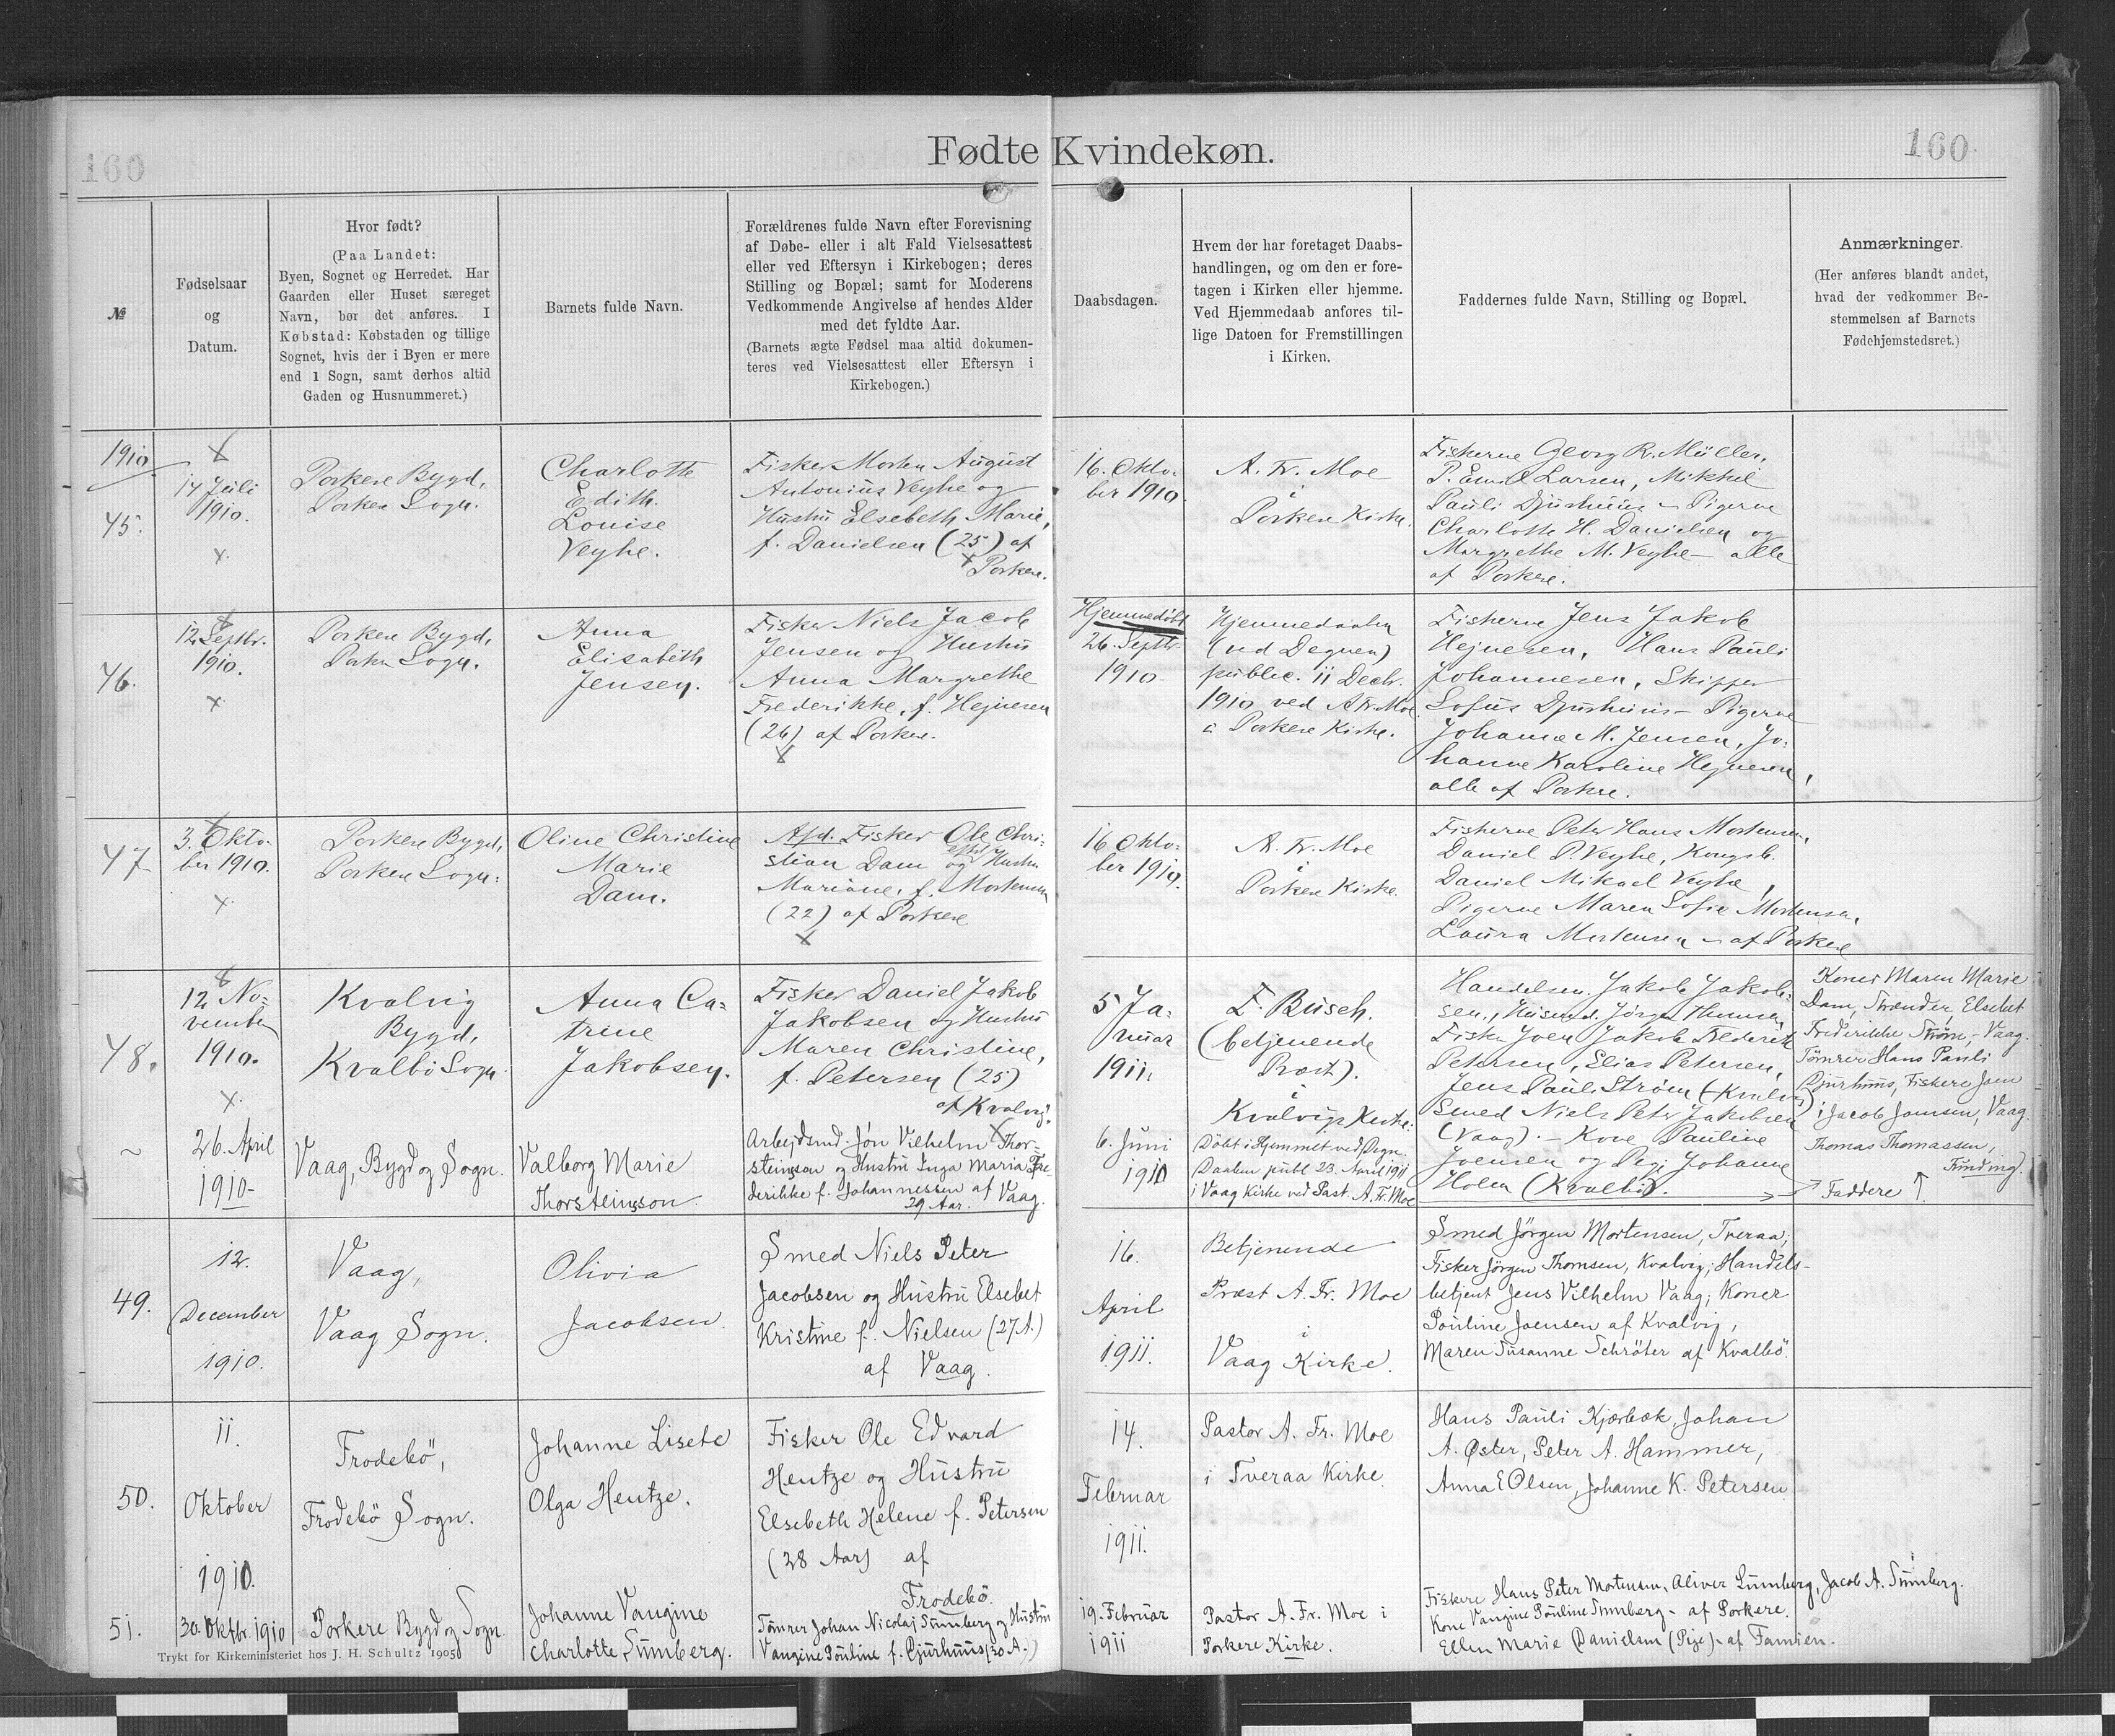 160
Fødte Kvindekøn.
160.
№
Fødselsaar
og
Datum.
Hvor født?
(Paa Landet:
Byen, Sognet og Herredet. Har
Gaarden eller Huset særeget
Navn, bør det anføres. I
Købstad: Købstaden og tillige
Sognet, hvis der i Byen er mere
end 1 Sogn, samt derhos altid
Gaden og Husnummeret.)
Barnets fulde Navn.
Forældrenes fulde Navn efter Forevisning
af Døbe- eller i alt Fald Vielsesattest
eller ved Eftersyn i Kirkebogen; deres
Stilling og Bopæl; samt for Moderens
Vedkommende Angivelse af hendes Alder
med det fyldte Aar.
(Barnets ægte Fødsel maa altid dokumen-
teres ved Vielsesattest eller Eftersyn i
Kirkebogen.)
Daabsdagen.
Hvem der har foretaget Daabs-
handlingen, og om den er fore-
tagen i Kirken eller hjemme.
Ved Hjemmedaab anføres til-
lige Datoen for Fremstillingen
i Kirken.
Faddernes fulde Navn, Stilling og Bopæl.
Anmærkninger.
(Her anføres blandt andet,
hvad der vedkommer Be-
stemmelsen af Barnets
Fødehjemstedsret.)
1910
45.
x
14 Juli
1910.
x.
Porkere Bygd,
Porkere Sogn.
Charlotte
Edith
Louise
Veyhe.
Fisker Morten August
Antonius Veyhe og
Hustru Elsebeth Marie,
f. Danielsen (25) af
x Porkere.
16. Okto-
ber 1910.
A. Fr. Moe
i
Porkere Kirke.
Fiskerne Georg R. Müller,
P. Emil Larsen, Mikkel
Pauli Djurhuus - Pigerne
Charlotte H. Danielsen og
Margrethe M. Veyhe - alle
af Porkere.
46.
x
12 Septbr.
1910.
x.
Porkere Bygd,
Porkere Sogn.
Anna
Elisabeth
Jensen.
Fisker Niels Jacob
Jensen og Hustru
Anna Margrethe
Frederikke, f. Hejnesen
(26) af Porkere.
x
Hjemmedøbt
26. Septbr.
1910.
Hjemmedaaben
(ved Degnen)
public. 11 Decbr.
1910 ved A Fr. Moe
i Porkere Kirke.
Fiskerne Jens Jakob
Hejnesen, Hans Pauli
Johannesen, Skipper
Sofus Djurhuus - Pigerne
Johanna M. Jensen, Jo-
hanne Karoline Hejnesen,
alle af Porkere.
47
x
3. Okto-
ber 1910.
x.
Porkere Bygd,
Porkere Sogn.
Oline Christine
Marie
Dam.
Afd. Fisker Ole Chri-
stian Dam og Hustru
Mariane, f. Mortensen
(22) af Porkere
x
16 Okto-
ber 1910.
A. Fr. Moe
i
Porkere Kirke.
Fiskerne Peter Hans Mortensen,
Daniel P. Veyhe, Kongsb.
Daniel Mikael Veyhe,
Pigerne Maren Sofie Mortensen,
Laura Mortensen - af Porkere
48.
x
12 No-
vember
1910.
x.
Kvalvig
Bygd,
Kvalbø Sogn.
Anna Ca-
trine
Jakobsen.
Fisker Daniel Jakob
Jakobsen og Hustru
Maren Christine,
f. Petersen (25)
af Kvalvig.
x
5 Ja-
nuar
1911.
F. Busch.
(betjenende
Præst).
i
Kvalvigs Kirke.
Handelsm. Jakob Jakob-
sen, Husmd. Jørgen
Fisker Joen Jakob Frederik
Petersen, Elias Petersen,
Jens Pauli Strøm (Kvalvig)
Smed Niels Peter Jakobsen
(Vaag). - Kone Pauline
Joensen og Pige Johanne
Holm (Kvalbø).
Koner Maren Marie
Dam, Strænder, Elsebet
Frederikke Strøm, Vaag.
Tømrer Hans Pauli
Djurhuus, Fiskere Joen
Jacob Joensen, Vaag.
Thomas Thomassen,
Funding).
→ Faddere ↑
~
26. April
1910-
Vaag, Bygd og Sogn.
Valborg Marie
Thorsteinsson.
Arbejdsmd. Jón Vilhelm Thor-
steinsson og Hustru Inga Maria Fre-
derikke f. Johannessen af Vaag.
29 Aar.
6. Juni
1910
Döbt i Hjemmet ved Degn.
Daaben publ 23. April 1911
i Vaag Kirke ved Past. A. Fr. Moe
49.
12.
December
1910.
Vaag,
Vaag Sogn.
Olivia
Jacobsen.
Smed Niels Peter
Jacobsen og Hustru Elsebet
Kristine f. Nielsen (27 A.)
af Vaag.
16.
April
1911.
Betjenende
Præst A. Fr. Moe
i
Vaag Kirke.
Smed Jörgen Mortensen, Tveraa;
Fisker Jörgen Thomsen, Kvalvig; Handels-
betjent Jens Vilhelm Vaag; Koner
Pouline Joensen af Kvalvig,
Maren Susanne Schröter af Kvalbö.
50.
11.
Oktober
1910.
Frodebö,
Frodebö Sogn.
Johanne Lisete
Olga Hentze.
Fisker Ole Edvard
Hentze og Hustru
Elsebeth Helene f. Petersen
(28 Aar) af
Frodebö.
14.
Februar
1911.
Pastor A. Fr. Moe
i Tveraa Kirke
Hans Pauli Kjærbæk, Johan
A. Øster, Peter A. Hammer,
Anna E Olsen, Johanne K. Petersen
51.
30. Oktbr. 1910
Porkere Bygd og Sogn.
Johanne Vangine
Charlotte Sumberg.
Tömrer Johan Nicolaj Sumberg og Hustru
Vangine Pouline f. Djurhuus (30 A.)
19. Februar
1911
Pastor A. Fr. Moe i
Porkere Kirke.
Fiskere Hans Peter Mortensen, Aliver Sumberg, Jacob A. Sumberg.
Kone Vangine Pouline Sumberg - af Porkere.
Ellen Marie Danielsen (Pige) - af Famien.
Trykt for Kirkeministeriet hos J. H. Schultz 1905